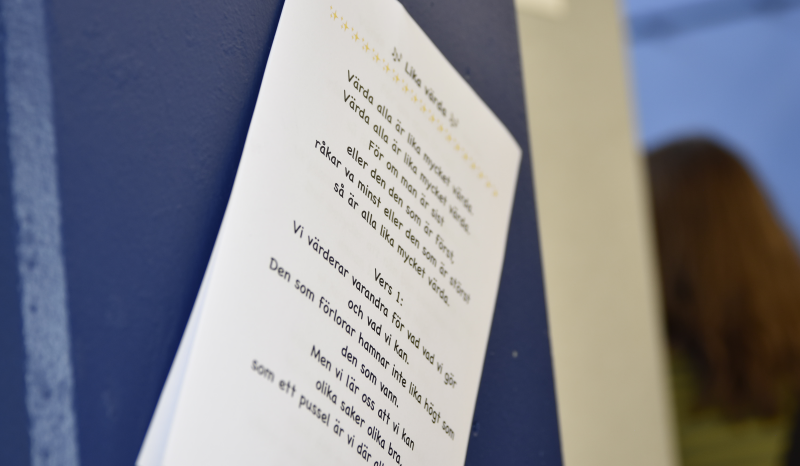 Lika värda
Värda alla är lika mycket värda.
Värda alla är lika mycket värda.
För om man är sist
eller den den som är först.
råkar va minst eller den som är störst
så är alla lika mycket värda.
Vers 1:
Vi värderar varandra för vad vad vi gör
och vad vi kan.
Den som förlorar hamnar inte lika högt som
den som vann.
Men vi lär oss att vi kan
olika saker olika bra.
som ett pussel är vi där